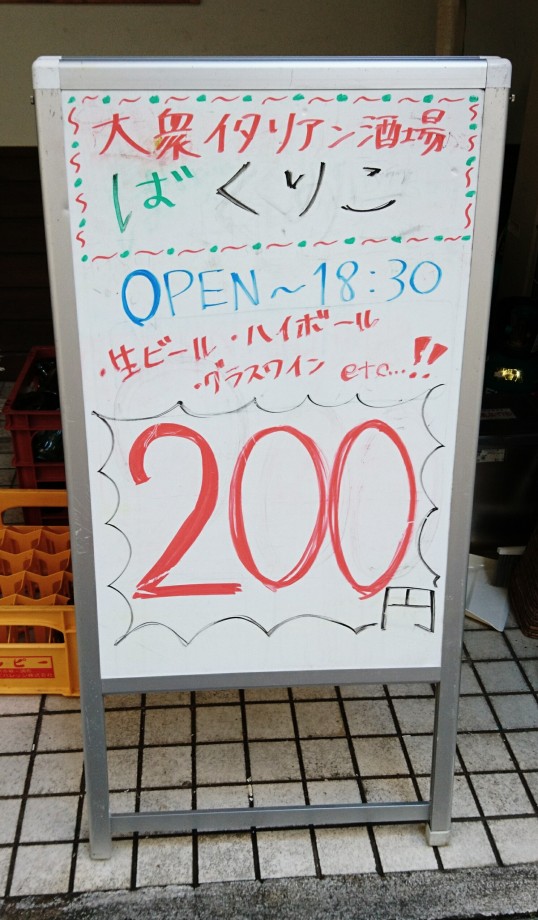 大衆イタリアン酒場
ばくりこ
OPEN～18:30
・生ビール・ハイボール
・グラスワイン etc...!!
200
円